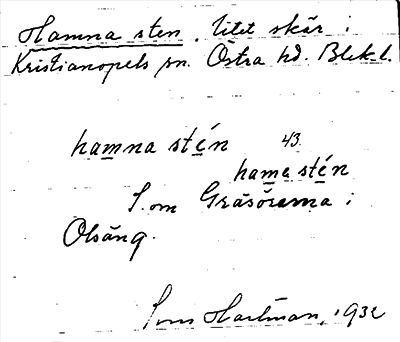 Hamna sten, litet skär i
Kristianopels sn. Östra hd. Blek. l.
hamna stén 43.
hama stén
S. om Gräsörarna i
Olsäng.
Hartman, 1932